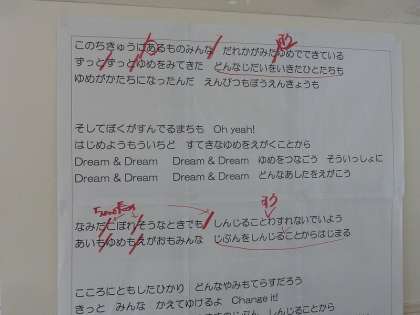 このちきゅうにあるものみんな　だれかがみたゆめでできている
ずっとずっとゆめをみてきた　どんなじだいをいきたひとたちも
ゆめがかたちになったんだ　えんぴつもぼうえんきょうも
そしてぼくがすんでるまちも　Oh yeah!
はじめようもういちど　すてきなゆめをえがくことから
Dream & Dream　Dream & Dream　ゆめをつなごう　そういっしょに
Dream & Dream　Dream & Dream　どんなあしたをえがこう
すう
なみだこぼれそうなときでも　しんじることわすれないでいよう
あいもゆめもえがおもみんな　じぶんをしんじることからはじまる
こころにともしたひかり　どんなやみもてらすだろう
きっと　みんな　かえてゆけるよ　Change it!
しんじることから